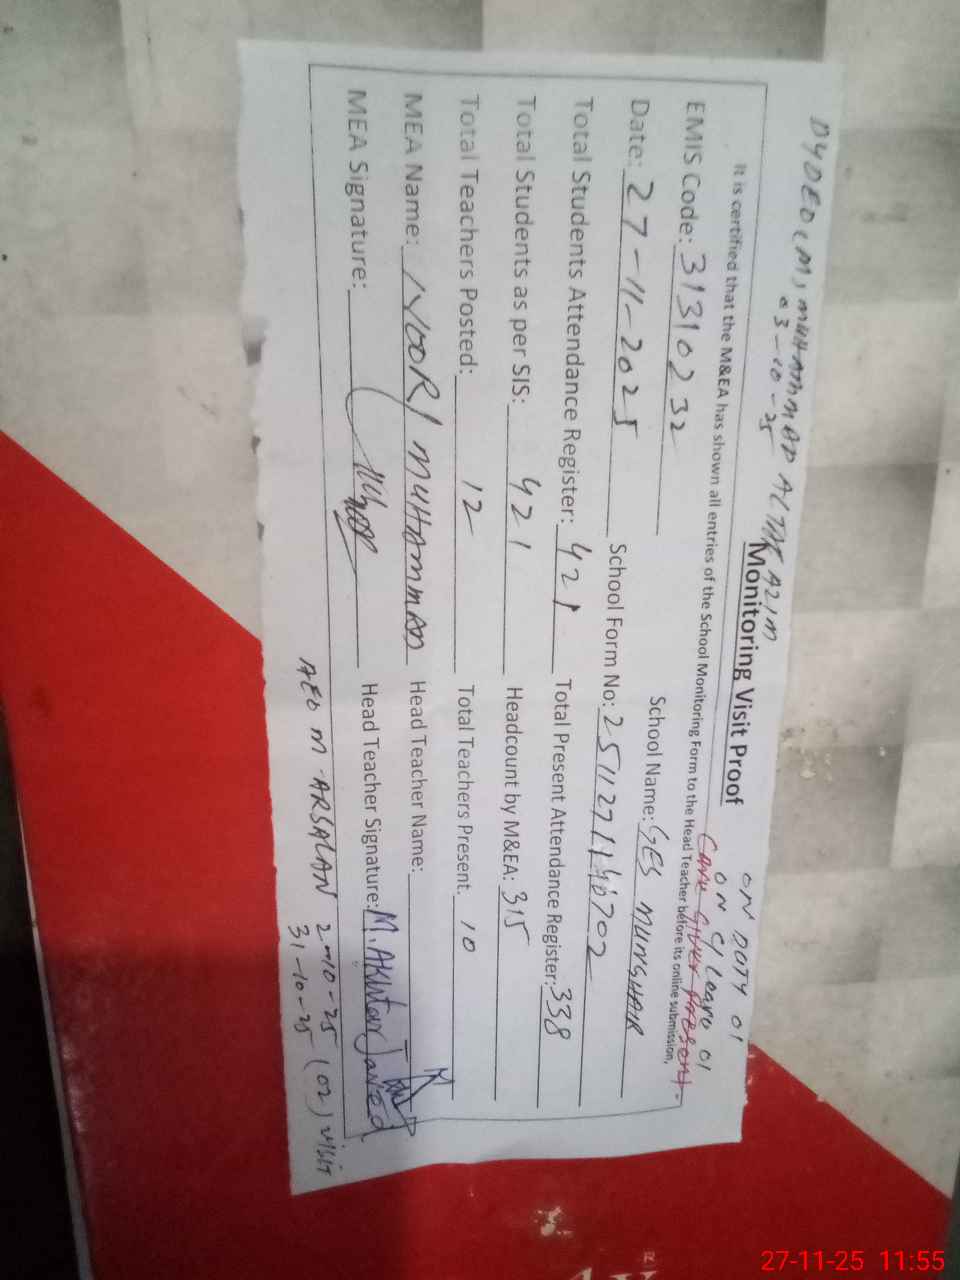 DYDEO (M) MUHAMMAD ALTAF AZIM
03-10-25
ON DUTY 01
ON C/Leave 01
Care Giver Present.
Monitoring Visit Proof
It is certified that the M&EA has shown all entries of the School Monitoring Form to the Head Teacher before its online submission,
EMIS Code: 31310232 School Name: GES MUNGHAIR
Date: 27-11-2025 School Form No: 2511271140702
Total Students Attendance Register: 421 Total Present Attendance Register: 338
Total Students as per SIS: 421 Headcount by M&EA: 315
Total Teachers Posted: 12 Total Teachers Present. 10
MEA Name: NOOR MUHAMMAD Head Teacher Name:
MEA Signature: Head Teacher Signature: M. Akhtar Javed
AEO M ARSALAN 2-10-25 (02) visit
31-10-25
27-11-25 11:55